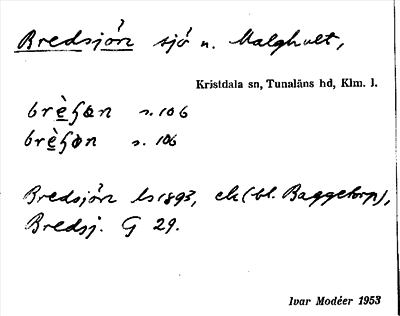 Bredsjön sjö n. Malghult,
Kristdala sn, Tunaläns hd, Klm. l.
s. 106
s. 106
Bredsjön ls 1893, ek (bl. Baggetorp),
Bredsj. G 29.
Ivar Modéer 1953